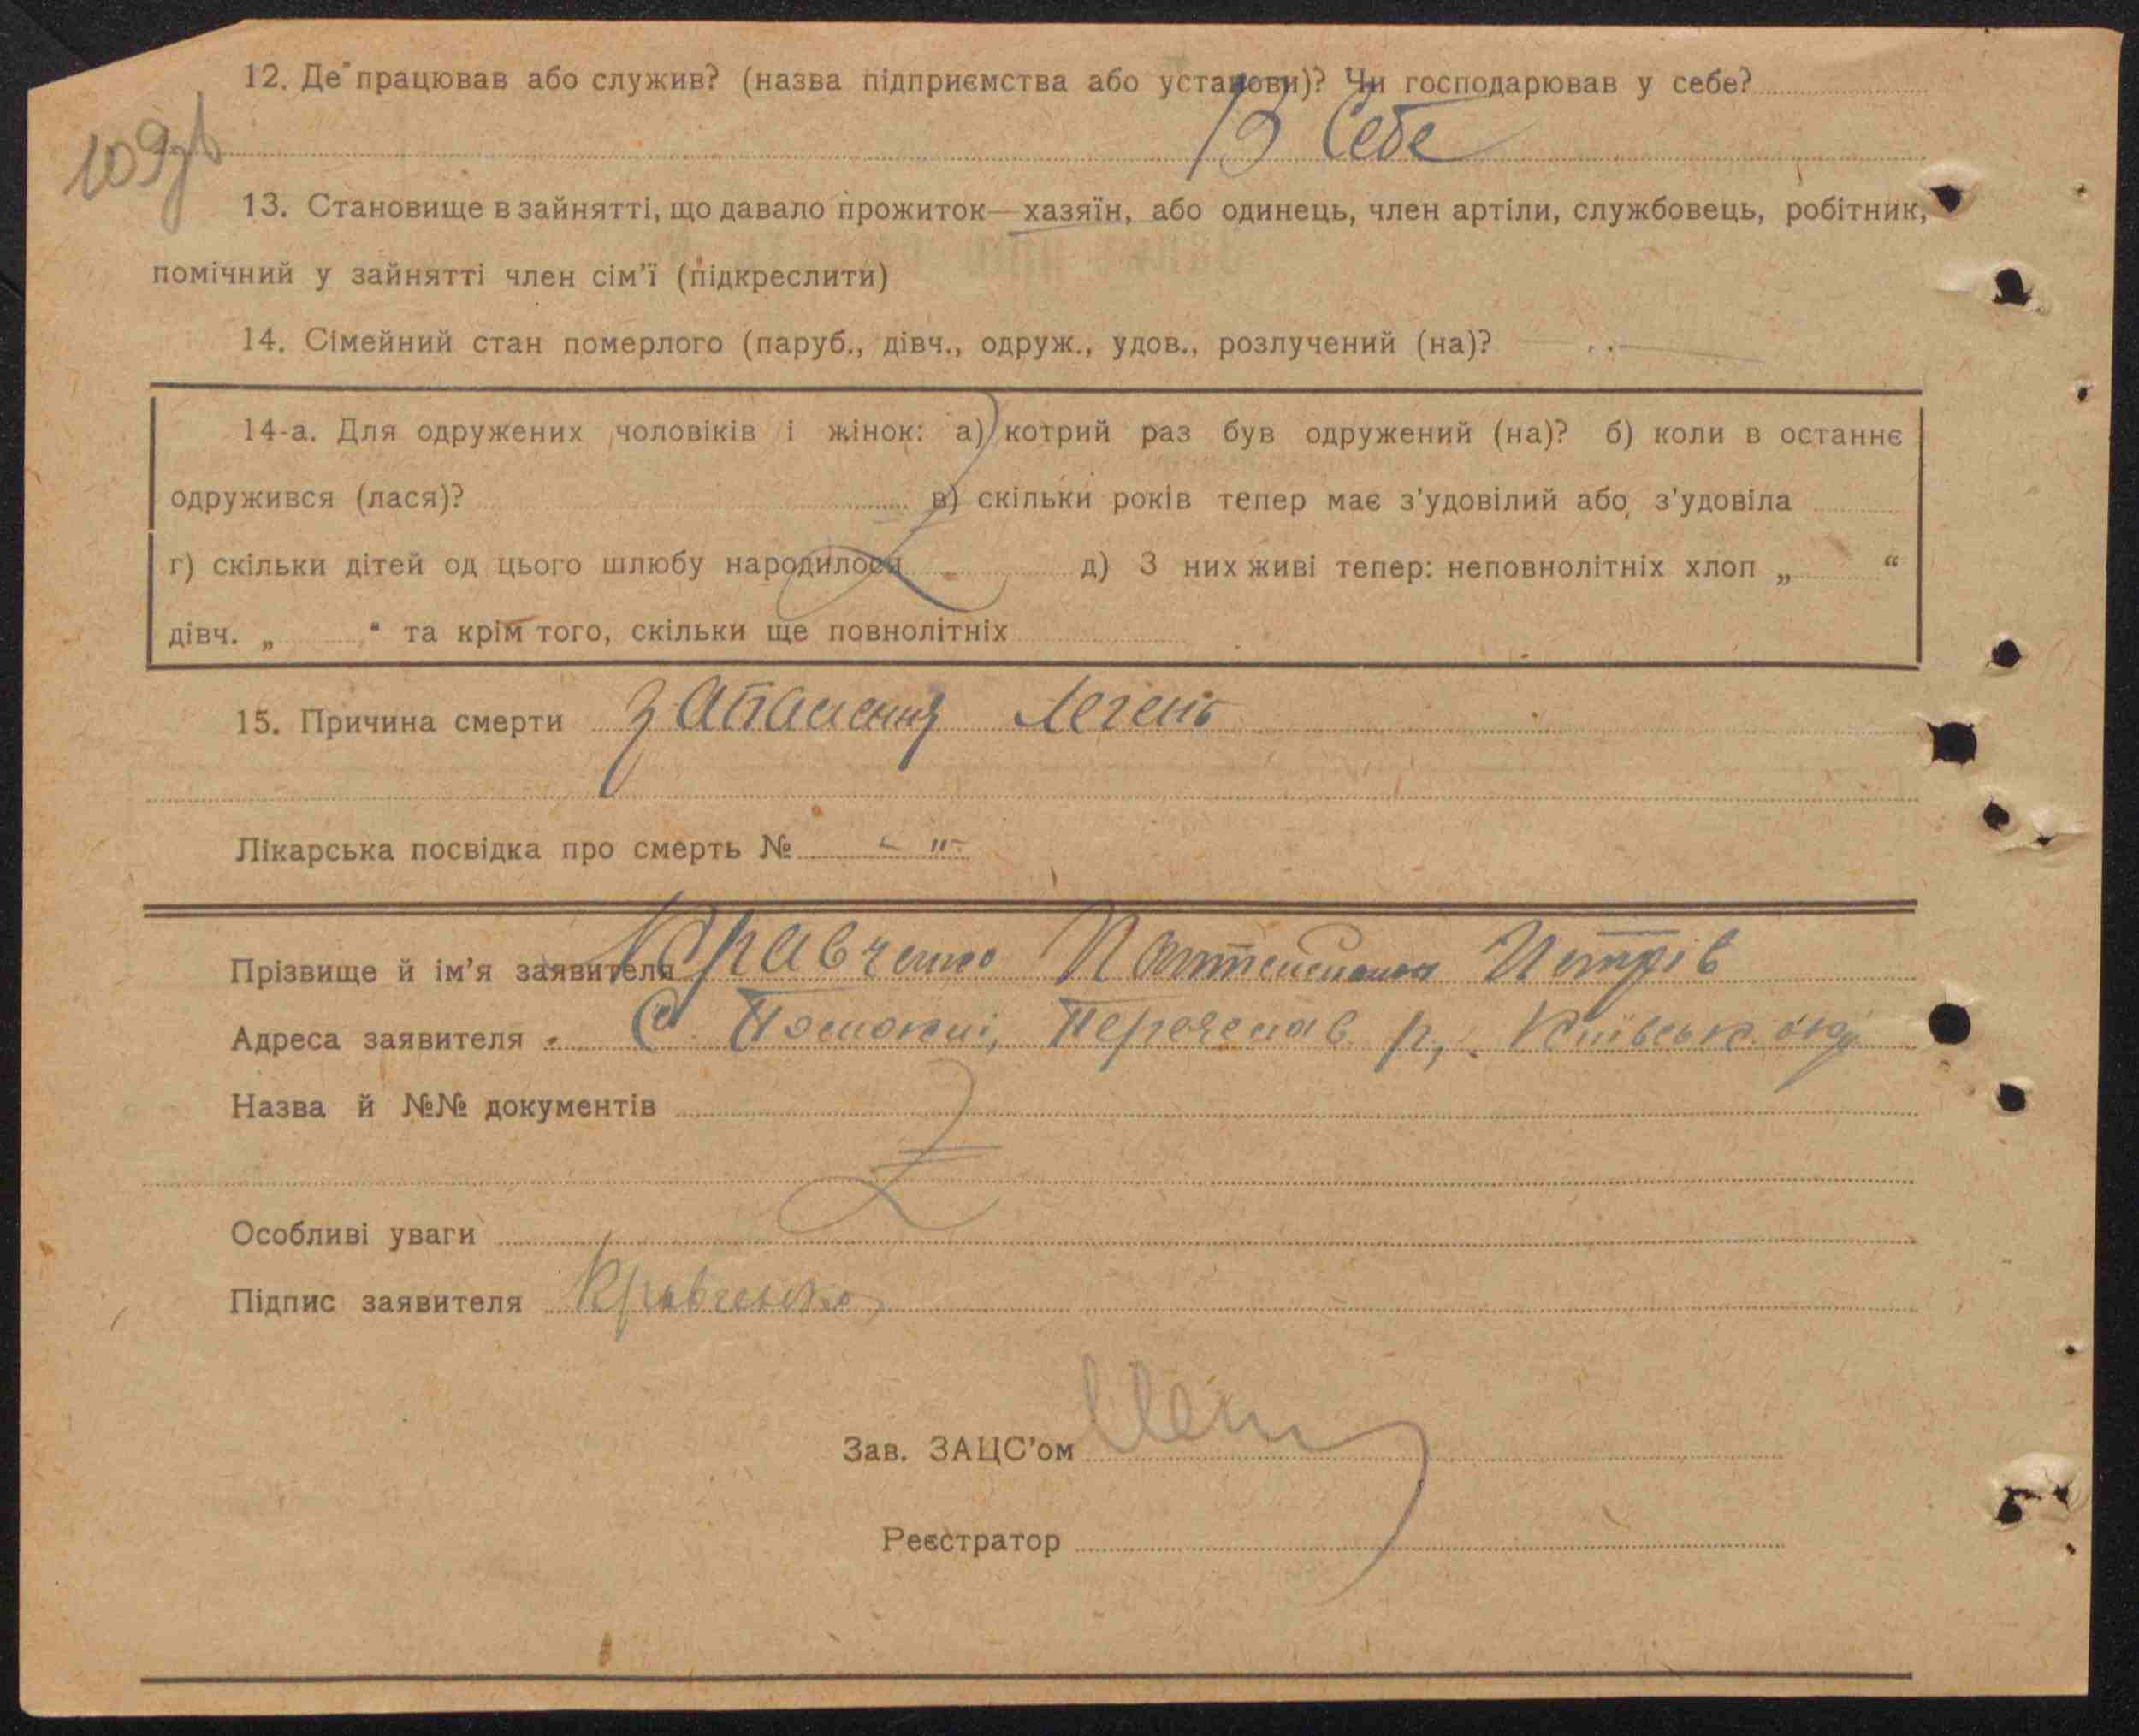 12. Де працював або служив? (назва підприємства або установи)? Чи господарював у себе?
109зв
В себе
13. Становище в зайнятті, що давало прожиток—хазяїн, або одинець, член артіли, службовець, робітник,
помічний у зайнятті член сім'ї (підкреслити)
14. Сімейний стан померлого (паруб., дівч., одруж., удов., розлучений (на)?
14-а. Для одружених чоловіків і жінок: а) котрий раз був одружений (на)? б) коли в останнє
одружився (лася)? в) скільки років тепер має з'удовілий або з'удовіла
г) скільки дітей од цього шлюбу народилося д) З них живі тепер: неповнолітніх хлоп „ “
дівч. „ “ та крім того, скільки ще повнолітніх
15. Причина смерти запалення легень
Лікарська посвідка про смерть № - " -
Прізвище й ім'я заявителя Кравченко
Адреса заявителя С. Переяслав р, Київськ. окр
Назва й №№ документів
Особливі уваги
Підпис заявителя Кравченко
Зав. ЗАЦС'ом
Реєстратор